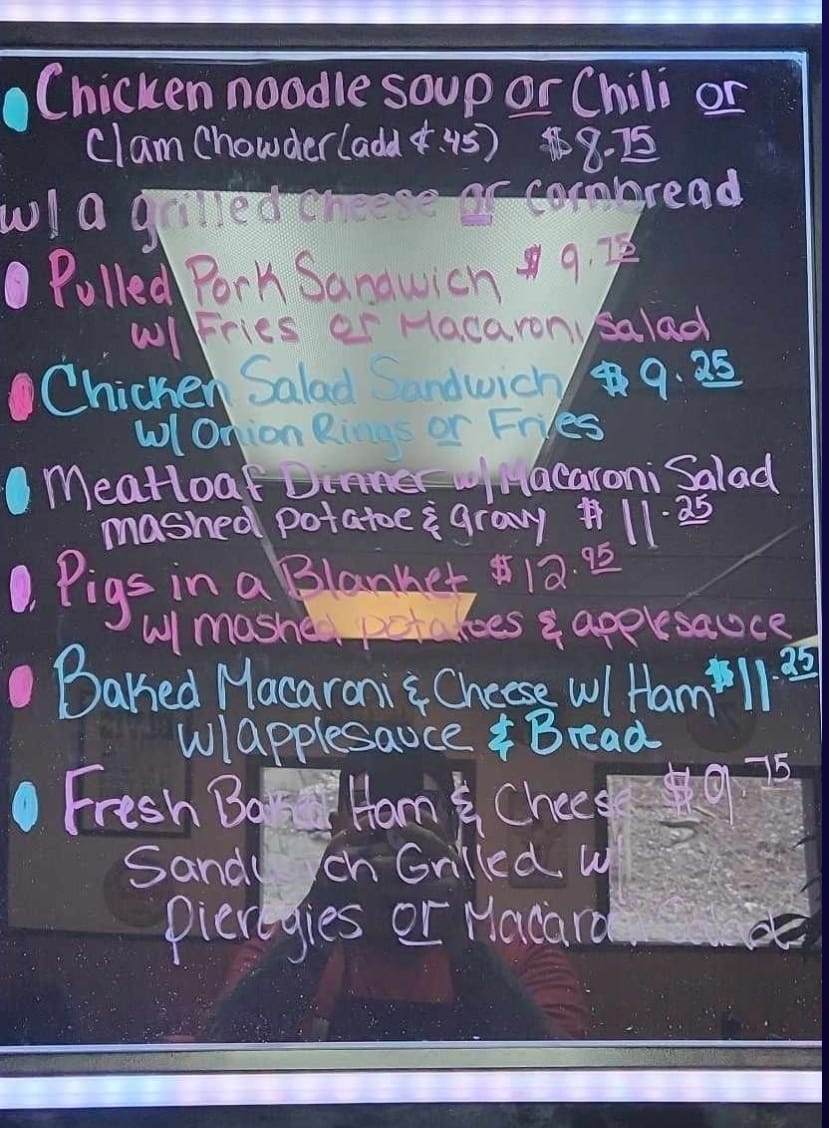 Chicken noodle soup or Chili or
Clam Chowder (add $.45) $8.75
w/ a grilled cheese or cornbread
Pulled Pork Sandwich $9.75
w/ Fries or Macaroni Salad
Chicken Salad Sandwich $9.25
w/ Onion Rings or Fries
Meatloaf Dinner w/ Macaroni Salad
mashed potatoe & gravy $11.25
Pigs in a Blanket $12.95
w/ mashed potatoes & applesauce
Baked Macaroni & Cheese w/ Ham $11.25
w/ applesauce & Bread
Fresh Baked Ham & Cheese $9.75
Sandwich Grilled w/
pierogies or Macaroni Salad